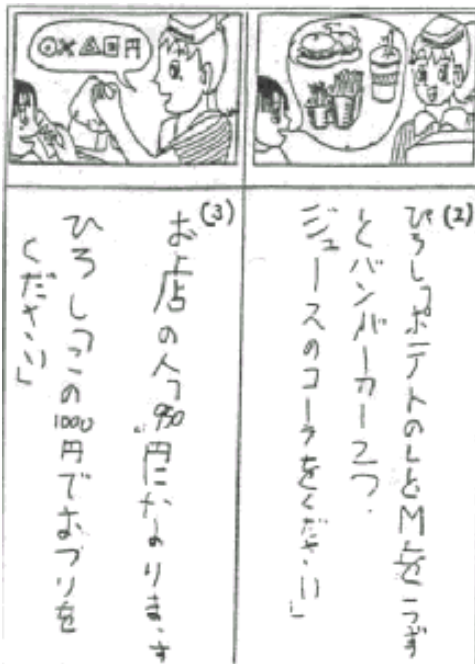 (2)
ひろし「ポテトのLとMを一つず
とバンバーガー2つ.
ジュースのコーラをください」
◎×△回円
(3)
お店の人「950円になります
ひろし「この1000円でおつりを
ください」